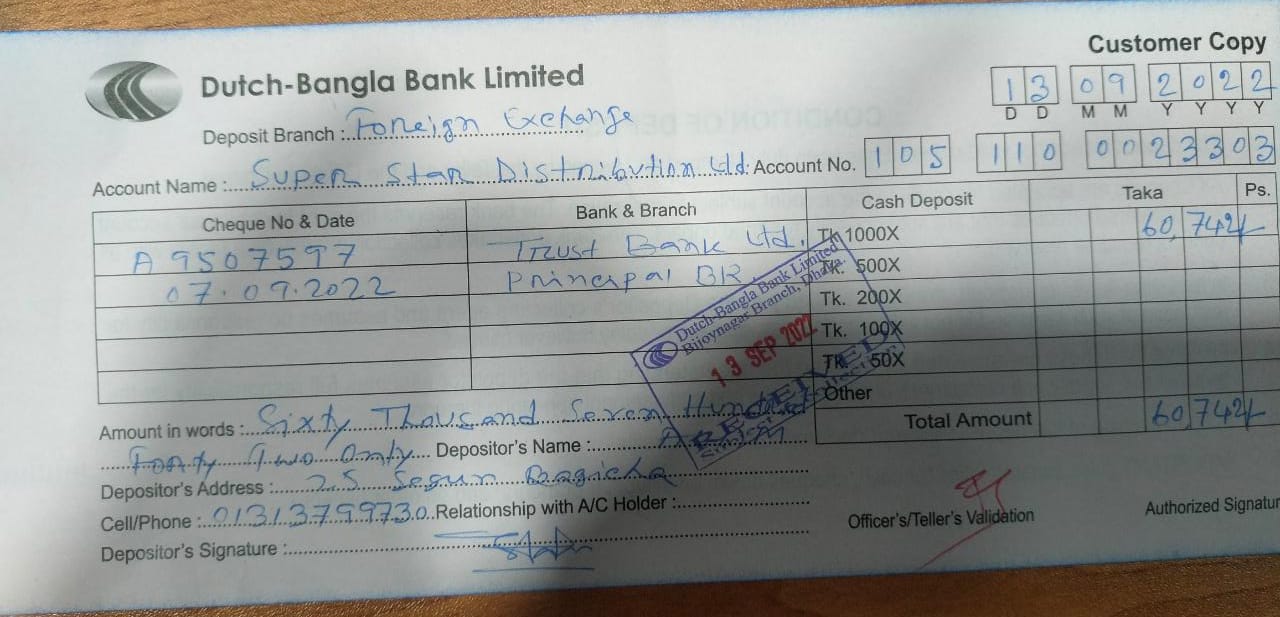 Customer Copy
Dutch-Bangla Bank Limited
13 09 2022
D D M M Y Y Y Y
Deposit Branch : Foreign Exchange
Account Name : Super Star Distribution Ltd. Account No. 105 110 0023303
Cheque No & Date Bank & Branch Cash Deposit Taka Ps.
A 9507597 Trust Bank Ltd. Tk 1000X 60,742/-
07.09.2022 Prinespal BR Tk. 500X
Tk. 200X
Tk. 100X
Tk. 50X
Other
Total Amount 60,742/-
Dutch-Bangla Bank Limited
Bijoynagar Branch, Dhaka.
13 SEP 2022
RECEIVED
Amount in words : Sixty Thousand Seven Hundred
Forty Two Only Depositor's Name :
Depositor's Address : 25 Segun Bagicha
Cell/Phone : 01313799730 Relationship with A/C Holder :
Depositor's Signature :
Officer's/Teller's Validation
Authorized Signatur